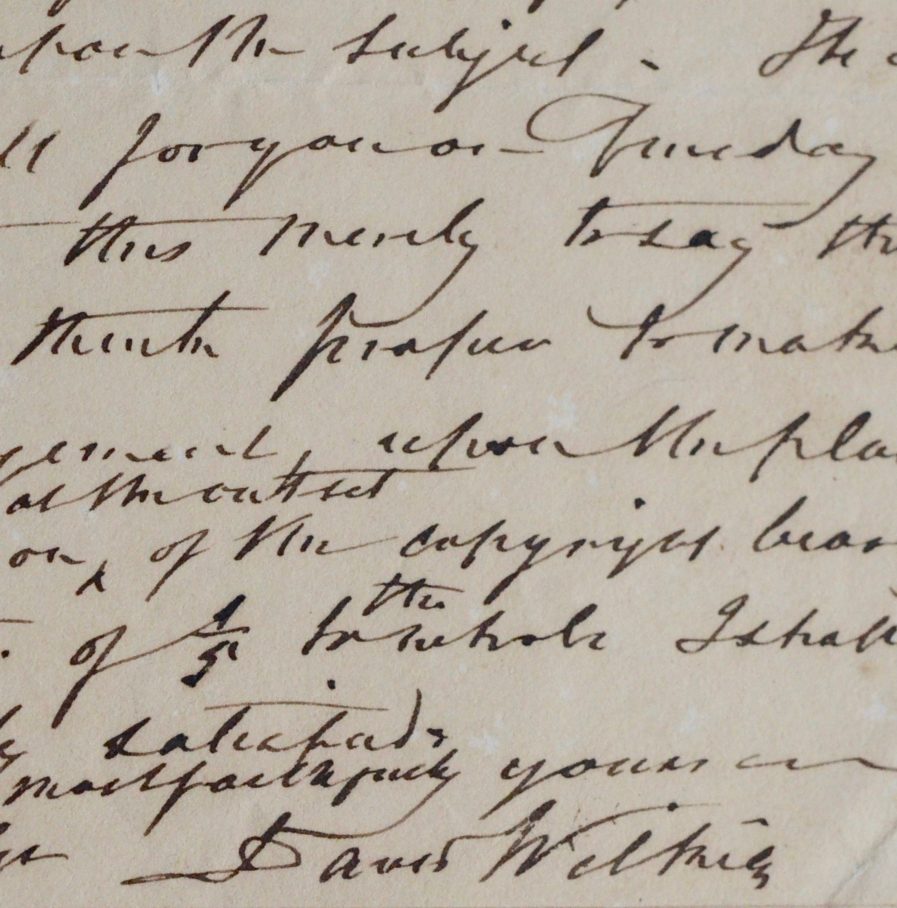 upon the subject. The
ll for you on Tuesday
this merely to say th
think proper to make
gement, upon the pla
at the outset
on, of the copyright bear
of 1/5 to the whole I shall
satisfied.
most faithfully yours
David Wilkie